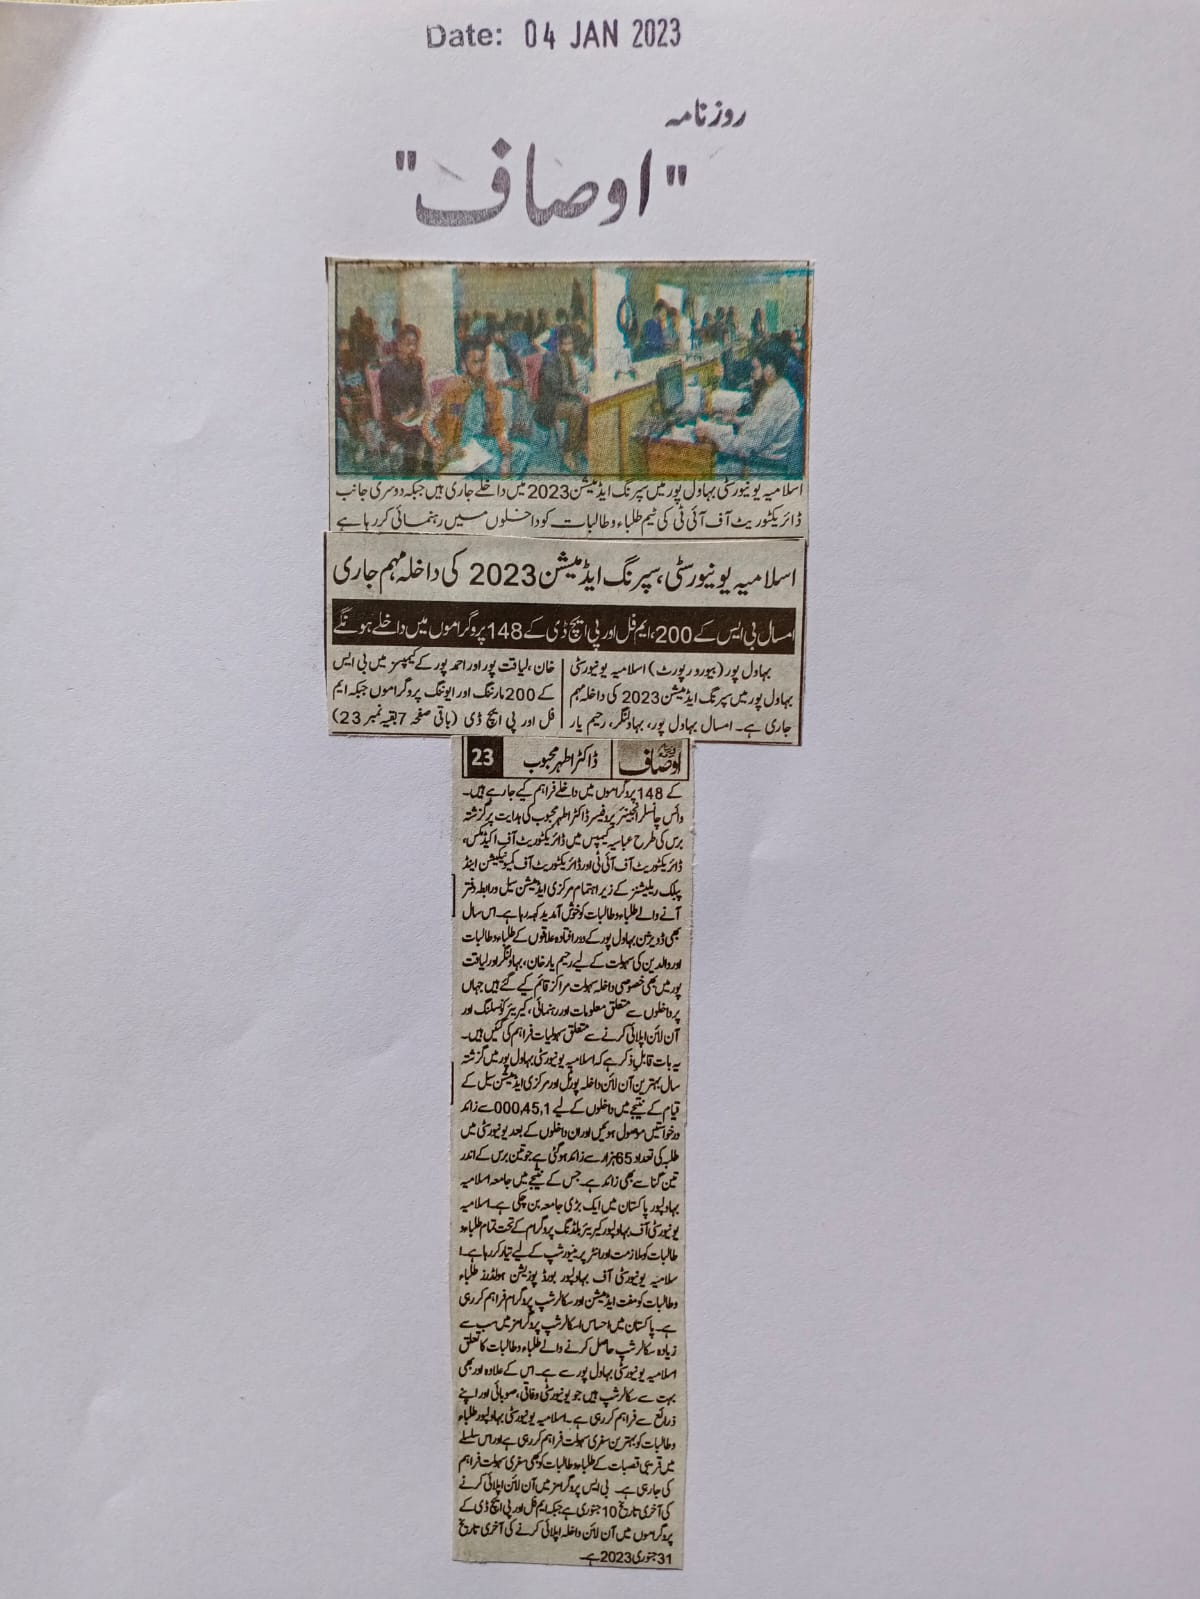 Date: 04 JAN 2023
روزنامہ
"اوصاف"
اسلامیہ یونیورسٹی بہاول پور میں سپرنگ ایڈمیشن 2023 میں داخلے جاری ہیں جبکہ دوسری جانب
ڈائریکٹوریٹ آف آئی ٹی کی ٹیم طلباء و طالبات کو داخلوں میں رہنمائی کر رہا ہے
اسلامیہ یونیورسٹی، سپرنگ ایڈمیشن 2023 کی داخلہ مہم جاری
امسال بی ایس کے 200، ایم فل اور پی ایچ ڈی کے 148 پروگراموں میں داخلے ہونگے
بہاول پور (بیورو رپورٹ) اسلامیہ یونیورسٹی
بہاول پور میں سپرنگ ایڈمیشن 2023 کی داخلہ مہم
جاری ہے۔ امسال بہاول پور، بہاولنگر، رحیم یار
خان، لیاقت پور اور احمد پور کے کیمپسز میں بی ایس
کے 200 مارننگ اور ایوننگ پروگراموں جبکہ ایم
فل اور پی ایچ ڈی (باقی صفحہ 7 بقیہ نمبر 23)
اوصاف ڈاکٹر اطہر محبوب 23
کے 148 پروگراموں میں داخلے فراہم کیے جا رہے ہیں۔
وائس چانسلر انجینئر پروفیسر ڈاکٹر اطہر محبوب کی ہدایت پر گزشتہ
برس کی طرح عباسیہ کیمپس میں ڈائریکٹوریٹ آف اکیڈمکس،
ڈائریکٹوریٹ آف آئی ٹی اور ڈائریکٹوریٹ آف کمیونیکیشن اینڈ
پبلک ریلیشنز کے زیر اہتمام مرکزی ایڈمیشن سیل و رابطہ دفتر
آنے والے طلباء و طالبات کو خوش آمدید کہہ رہا ہے۔ اس سال
بھی ڈویژن بہاول پور کے دور افتادہ علاقوں کے طلباء و طالبات
اور والدین کی سہولت کے لیے رحیم یار خان، بہاولنگر اور لیاقت
پور میں بھی خصوصی داخلہ سہولت مراکز قائم کیے گئے ہیں جہاں
پر داخلوں سے متعلق معلومات اور رہنمائی، کیریئر کونسلنگ اور
آن لائن اپلائی کرنے سے متعلق سہولیات فراہم کی گئیں ہیں۔
یہ بات قابل ذکر ہے کہ اسلامیہ یونیورسٹی بہاول پور میں گزشتہ
سال بہترین آن لائن داخلہ پورٹل اور مرکزی ایڈمیشن سیل کے
قیام کے نتیجے میں داخلوں کے لیے 000,45,1 سے زائد
درخواستیں موصول ہوئیں اور ان داخلوں کے بعد یونیورسٹی میں
طلبہ کی تعداد 65 ہزار سے زائد ہو گئی ہے جو تین برس کے اندر
تین گنا سے بھی زائد ہے۔ جس کے نتیجے میں جامعہ اسلامیہ
بہاولپور پاکستان میں ایک بڑی جامعہ بن چکی ہے۔ اسلامیہ
یونیورسٹی آف بہاولپور کیریئر بلڈنگ پروگرام کے تحت تمام طلباء و
طالبات کو ملازمت اور انٹر پرینیورشپ کے لیے تیار کر رہا ہے۔ ا
سلامیہ یونیورسٹی آف بہاولپور بورڈ پوزیشن ہولڈرز طلباء
و طالبات کو مفت ایڈمیشن اور سکالرشپ پروگرام فراہم کر رہی
ہے۔ پاکستان میں احساس اسکالرشپ پروگرامز میں سب سے
زیادہ سکالرشپ حاصل کرنے والے طلباء و طالبات کا تعلق
اسلامیہ یونیورسٹی بہاول پور سے ہے۔ اس کے علاوہ اور بھی
بہت سے سکالرشپ ہیں جو یونیورسٹی وفاقی، صوبائی اور اپنے
ذرائع سے فراہم کر رہی ہے۔ اسلامیہ یونیورسٹی بہاولپور طلباء
و طالبات کو بہترین سفری سہولت فراہم کر رہی ہے اور اس سلسلے
میں قریبی قصبات کے طلباء و طالبات کو بھی سفری سہولت فراہم
کی جا رہی ہے۔ بی ایس پروگرامز میں آن لائن اپلائی کرنے
کی آخری تاریخ 10 جنوری ہے جبکہ ایم فل اور پی ایچ ڈی کے
پروگراموں میں آن لائن داخلہ اپلائی کرنے کی آخری تاریخ
31 جنوری 2023 ہے۔